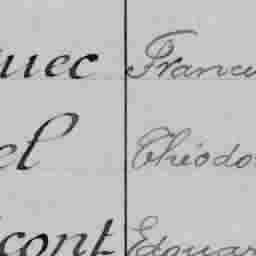 uec Franci
el Théodo
cont Edouar